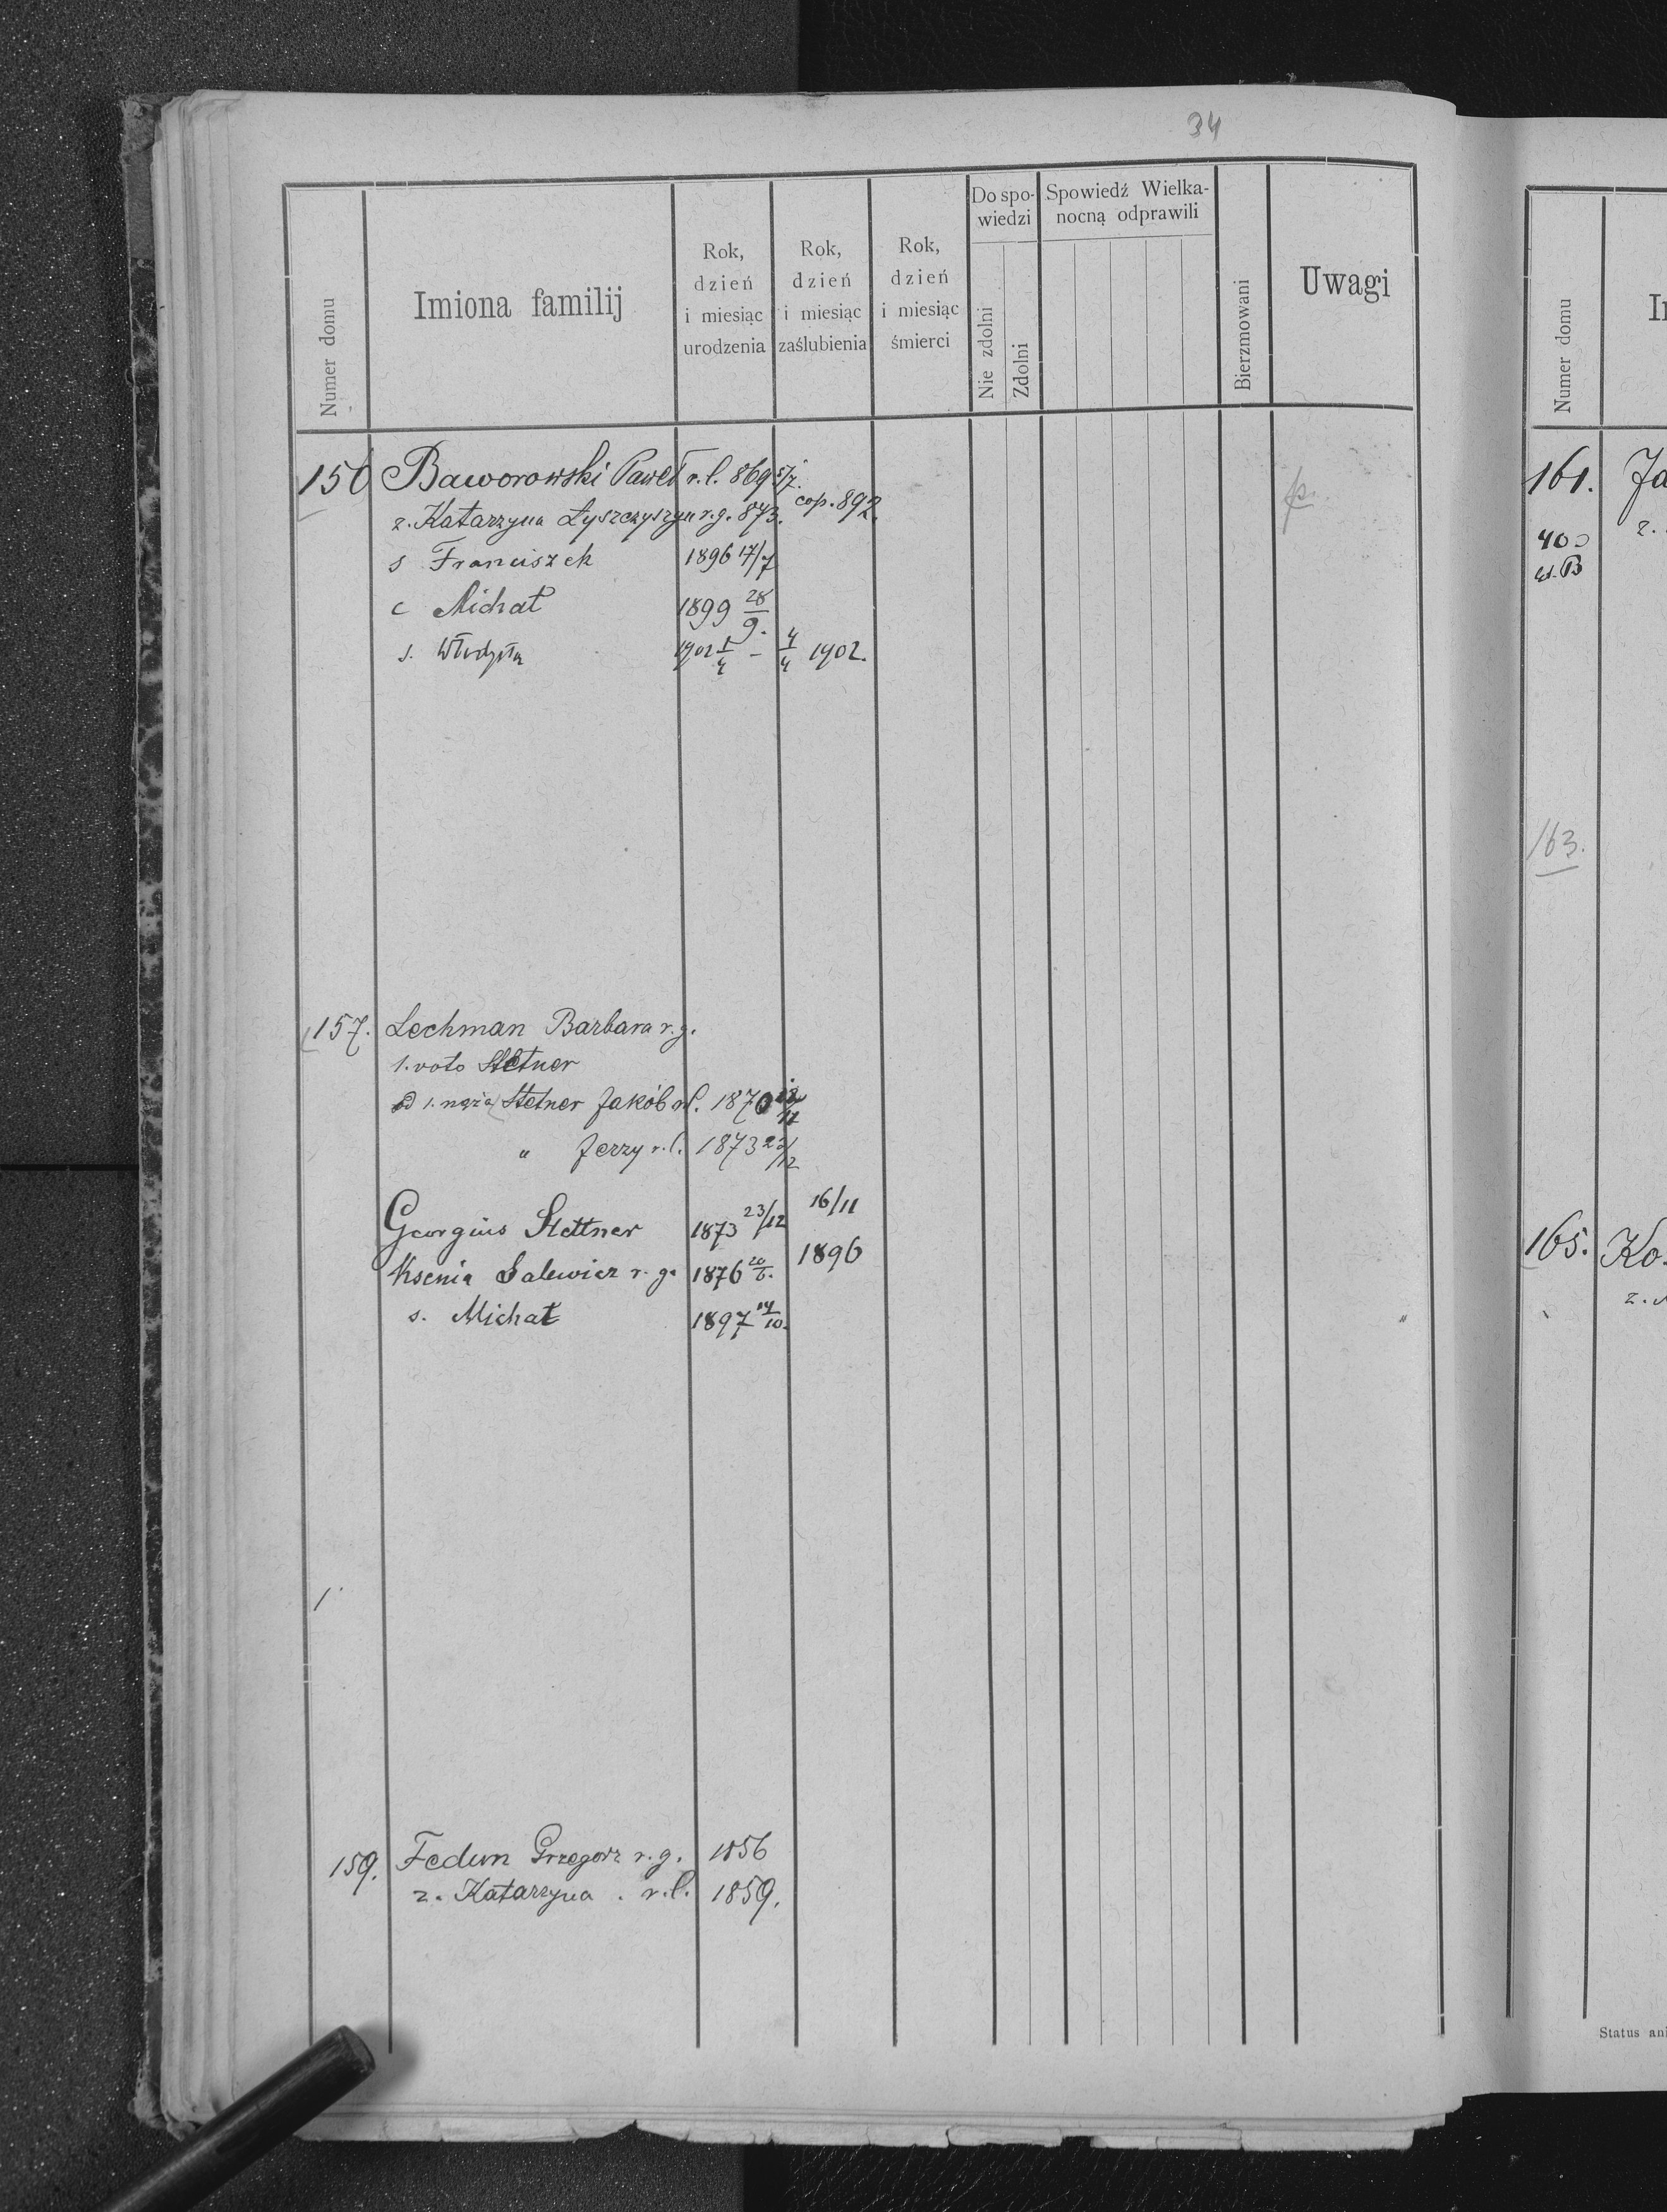 34
Numer domu
Imiona familij
Rok, dzień i miesiąc urodzenia
Rok, dzień i miesiąc zaślubienia
Rok, dzień i miesiąc śmierci
Do spo-
wiedzi
Nie zdolni
Zdolni
Spowiedź Wielka-
nocną odprawili
Bierzmowani
Uwagi
150 Baworowski Paweł r.l. 869 5/7.
ż. Katarzyna Łyszczyszyn r.g. 873. cop. 892.
s Franciszek 1896 17/7
c Michał 1899 28/9.
s. 1902 1/4 - 4/4 1902.
157. Lechman Barbara r.g.
1. voto Stetner
od 1. męża Stetner Jakób r.l. 1870
" Jerzy r.l. 1873 23/12
Georgius Stettner 1873 23/12 16/11
Ksenia Salewicz r. g. 1876 20/6. 1896
s. Michał 1897 14/10.
159. Fedun Grzegorz r.g. 1856
ż. Katarzyna . r.l. 1859.
Numer domu
161. Ja
ż.
400
163.
165. Ko.
Status ani